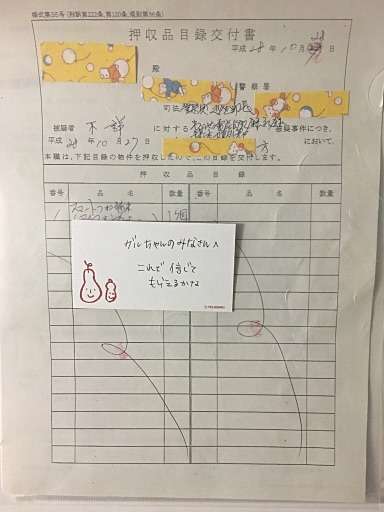 様式第55号（刑訴第222条,第120条,規範第56条）
押収品目録交付書
平成 28 年 10 月 日
殿
警察署
司法
被疑者 不詳 に対する 被疑事件につき、
平成 28 年 10 月 27 日 方 において、
本職は、下記目録の物件を押収したので、この目録を交付します。
押 収 品 目 録
番号 品 名 数量 番号 品 名 数量
1 1個
ガルちゃんのみなさんへ
これで信じて
もらえるかな